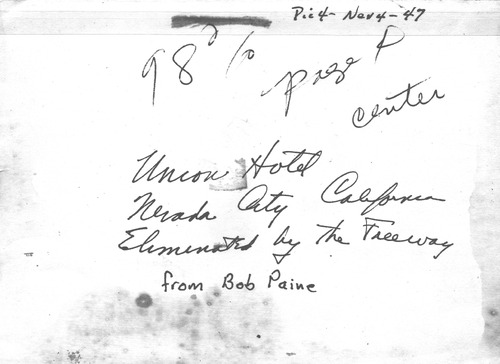 Pic4-Nev4-47
98%
page P
center
Union Hotel
Nevada City California
Eliminated by the Freeway
from Bob Paine